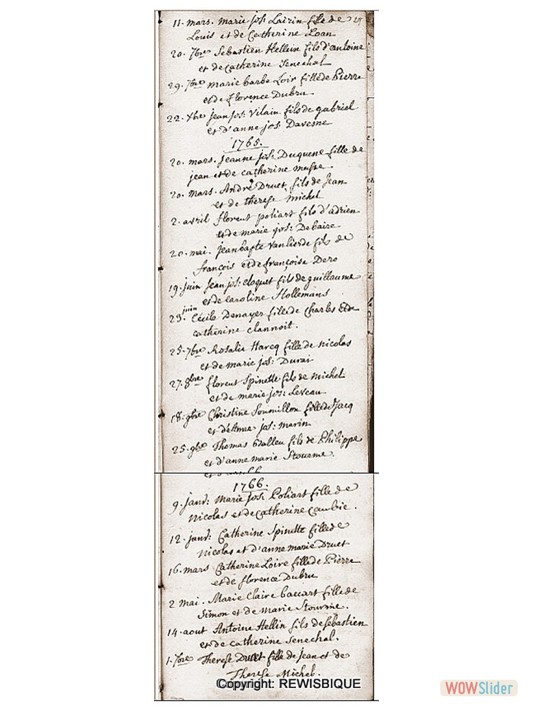 11. mars. marie jos: Lairin fille de
Louis et de Catherine Loan
20. 7bre Sebastien Hellein fils d'antoine
et de Catherine Senechal
29. 7bre marie barbe Loir fille de Pierre
et de florence Dubru
22. jean jos: Vilain fils de gabriel
et d'anne jos: Davesne
1765.
20. mars. jeanne jos: Duquene fille de
jean et de catherine
20. mars. André Druet fils de jean
et de therese michel
2. avril florent poliart fils d'adrien
et de marie jos: Debaire
20. mai. jean bapte Vanlierde fils de
françois et de françoise Dero
19. juin jean jos: cloquet fils de guillaume
et de caroline Hollemans
23. juin Cecile Denayer fille de Charles et de
catherine clannoit.
25. 7bre Rosalie Harcq fille de nicolas
et de marie jos: Durai
27. 8bre florent Spinette fils de michel
et de marie jos: Leveau
18. 9bre Christine Soumillon fille de Jacq
et d'Anne jos: marin
25. 9bre Thomas fils de Philippe
et d'anne marie Stourme.
1766.
9. janv: Marie jos: Poliart fille de
nicolas et de Catherine Caubie.
12. janv: Catherine Spinette fille de
nicolas et d'anne marie Druet
16. mars Catherine Loire fille de Pierre
et de florence Dubru
2 mai. Marie Claire baccart fille de
Simon et de marie Stourme.
14. aout Antoine Hellin fils de sebastien
et de catherine Senechal.
1. 7bre Therese Druet fille de jean et de
Therese Michel.
Copyright: REWISBIQUE
WOWSlider